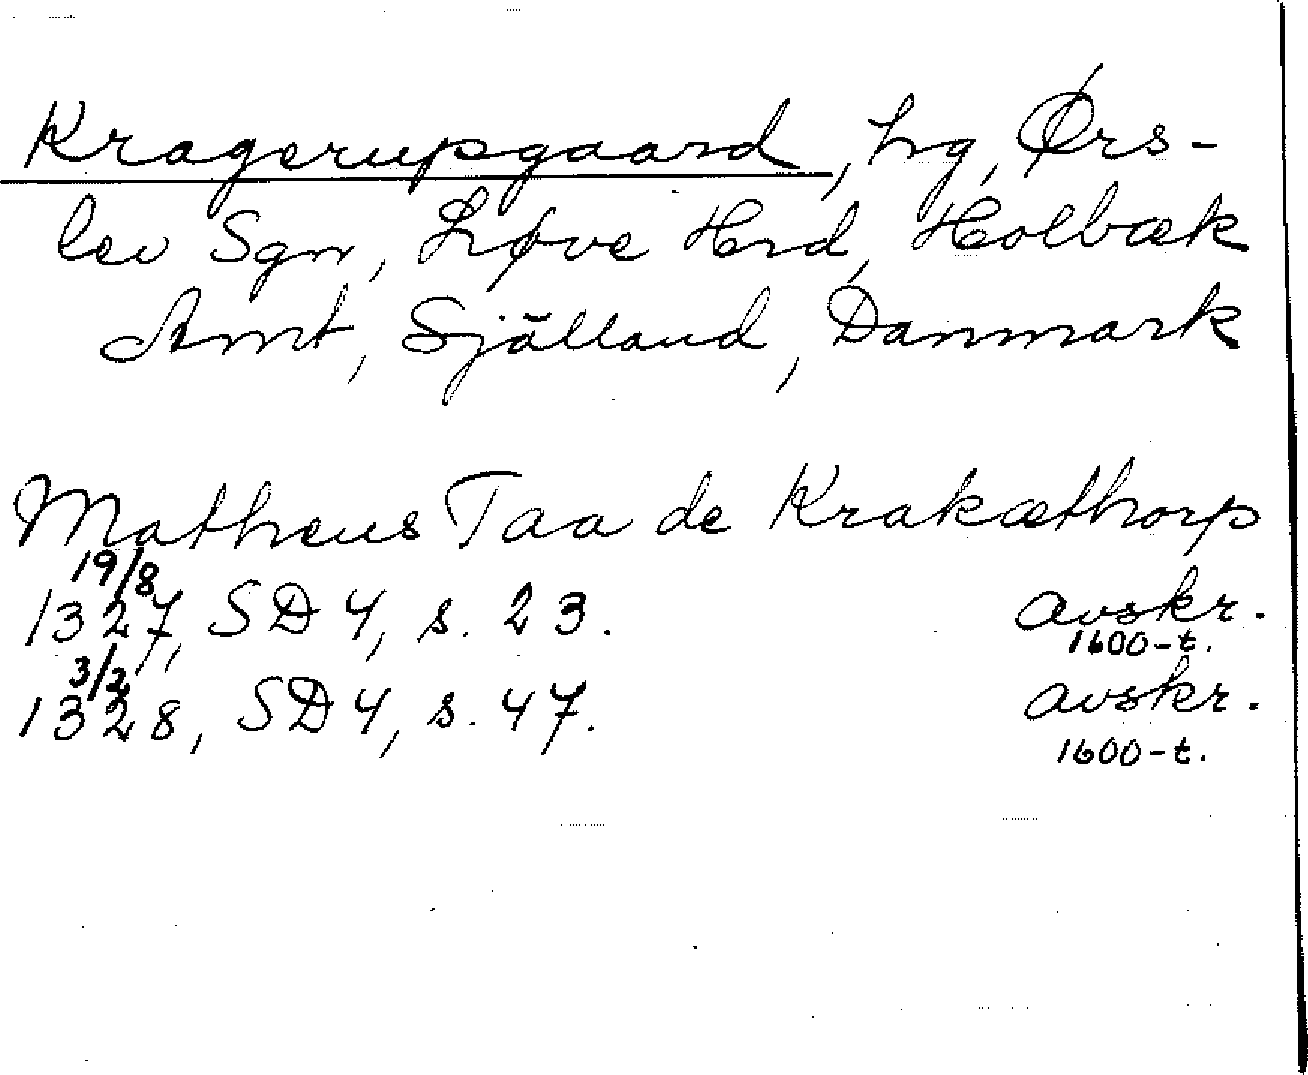 Kragerupgaard, hg, Ørs-
lev Sgn, Løve Hrd, Holbæk
Amt, Själland, Danmark
Matheus Taa de Krakæthorp
19/8
1327, SD 4, s. 23. avskr.
1600-t.
3/2
1328, SD 4, s. 47. avskr.
1600-t.